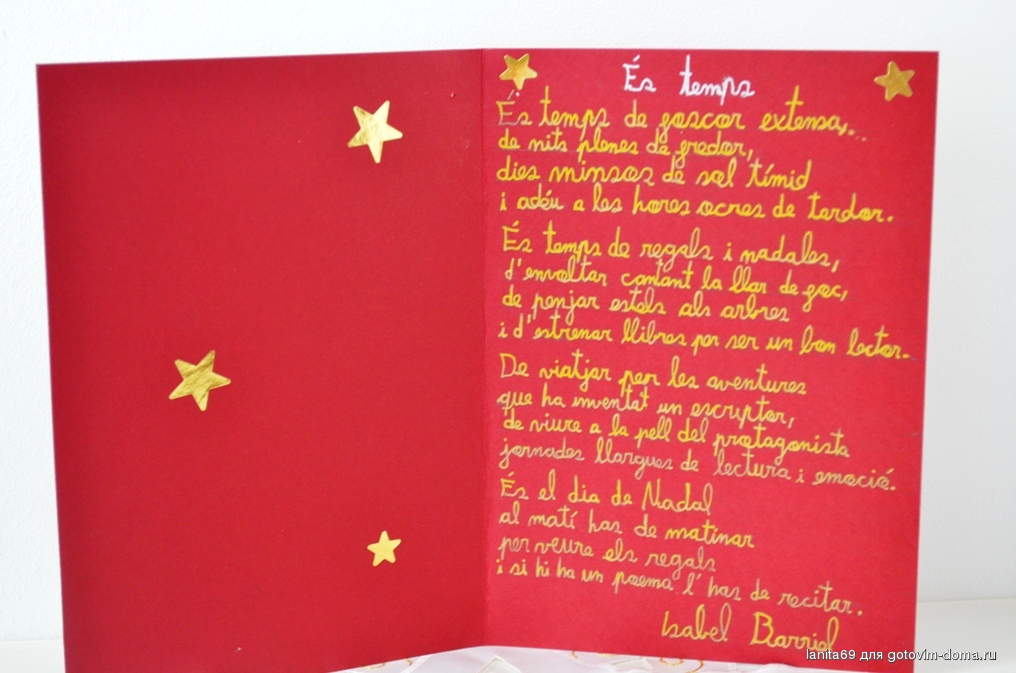 És temps
És temps de foscor extensa,
de nits plenes de fredor,
dies minsos de sol tímid
i adéu a les hores ocres de tardor.
És temps de regals i nadales,
d'envoltar cantant la llar de foc,
de penjar estels als arbres
i d'estrenar llibres per ser un bon lector.
De viatjar per les aventures
que ha inventat un escriptor,
de viure a la pell del protagonista
jornades llargues de lectura i emoció.
És el dia de Nadal
al matí has de matinar
per veure els regals
i si hi ha un poema l'has de recitar.
Isabel Barriel
lanita69 для gotovim-doma.ru